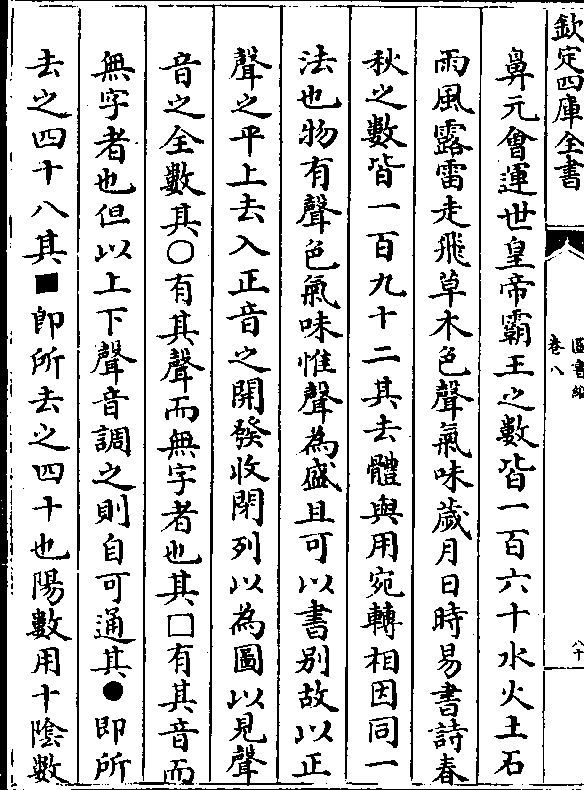 欽定四庫全書
圖書編
卷八
八十
鼻元會運世皇帝霸王之數皆一百六十水火土石
雨風露雷走飛草木色聲氣味歲月日時易書詩春
秋之數皆一百九十二其去體與用宛轉相因同一
法也物有聲色氣味惟聲為盛且可以書别故以正
聲之平上去入正音之開發收閉列以為圖以見聲
音之全數其○有其聲而無字者也其□有其音而
無字者也但以上下聲音調之則自可通其●即所
去之四十八其■即所去之四十也陽數用十陰數